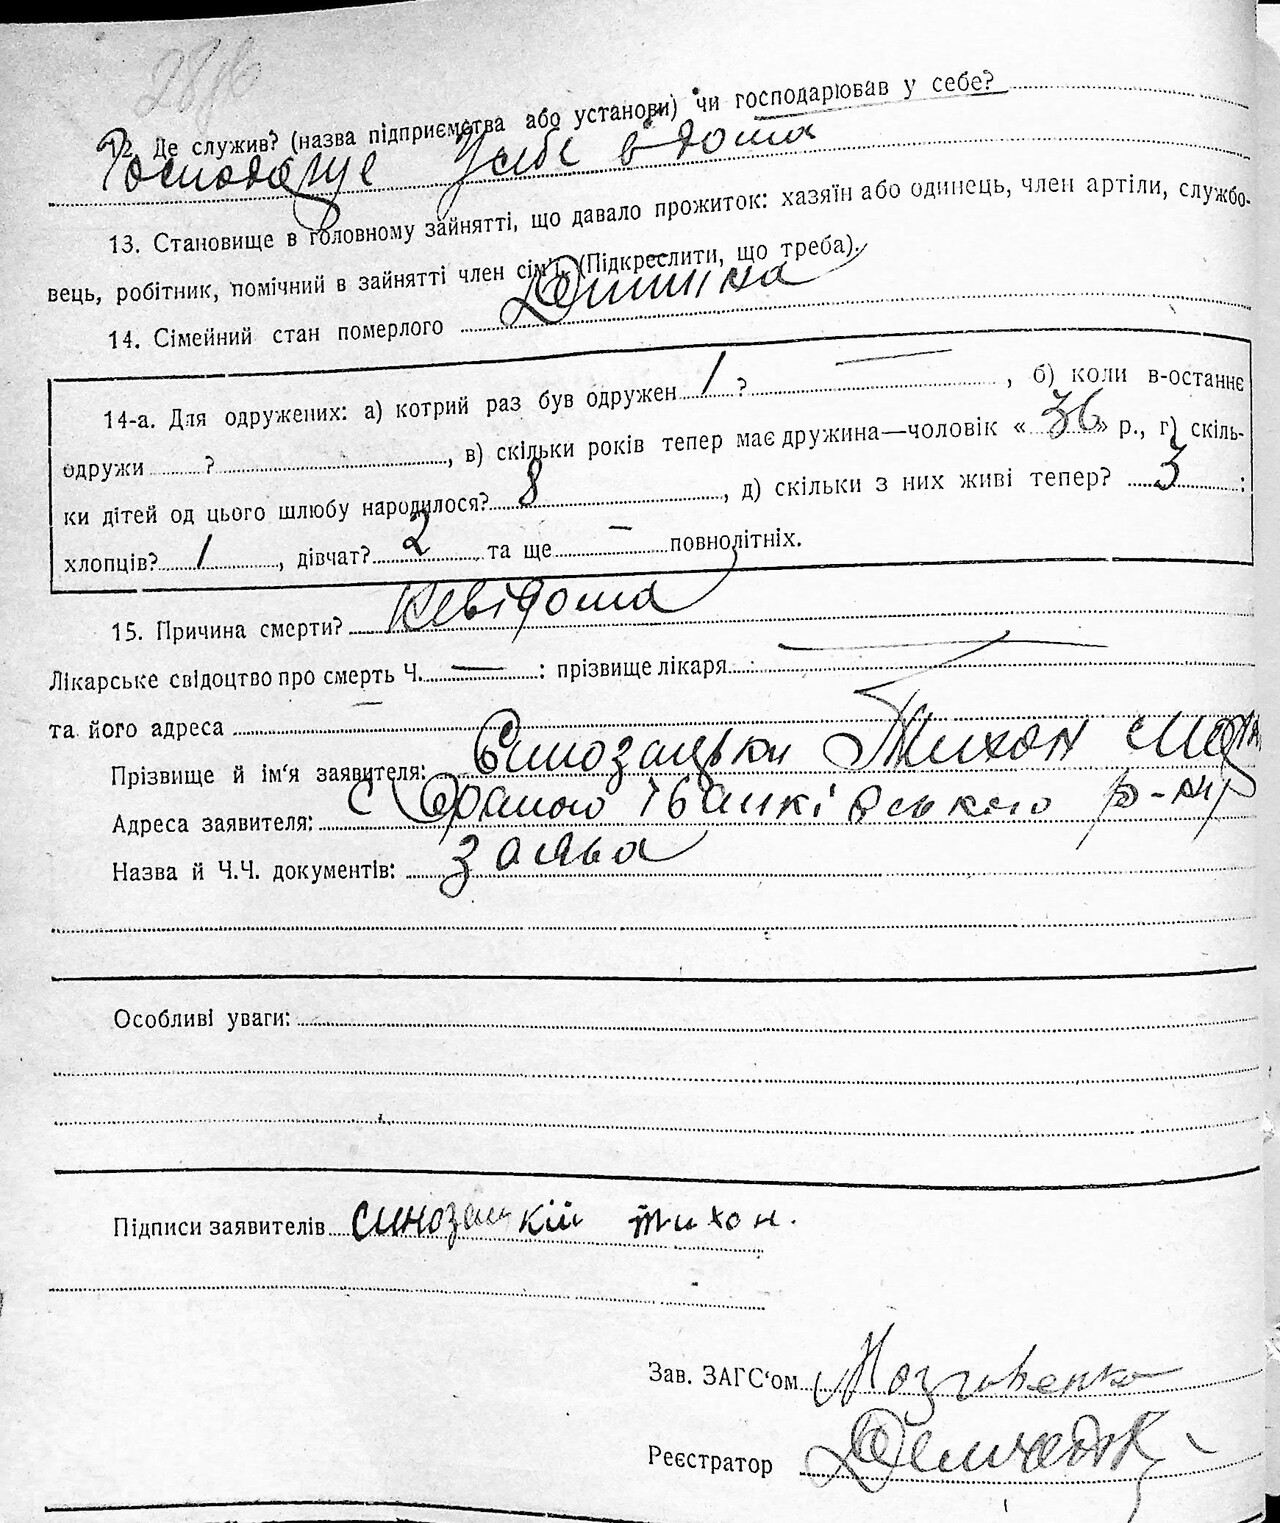 12. Де служив? (назва підприємства або установи) чи господарював у себе?
Господарує у себе вдома
13. Становище в головному зайнятті, що давало прожиток: хазяїн або одинець, член артілі, службо-
вець, робітник, помічний в зайнятті член сім'ї. (Підкреслити, що треба).
14. Сімейний стан померлого
14-а. Для одружених: а) котрий раз був одружен 1 ? — , б) коли в-останнє
одружи ? , в) скільки років тепер має дружина—чоловік « 36 » р., г) скіль-
ки дітей од цього шлюбу народилося? 8 , д) скільки з них живі тепер? 3 :
хлопців? 1 , дівчат? 2 та ще — повнолітніх.
15. Причина смерти? Невідома
Лікарське свідоцтво про смерть Ч. — : прізвище лікаря :
та його адреса
Прізвище й ім'я заявителя: Синозацьки Тихон
Адреса заявителя: с Іванківського р-ну
Назва й Ч.Ч. документів: заява
Особливі уваги:
Підписи заявителів синозацкій тихон.
Зав. ЗАГС'ом Мозговенко
Реєстратор